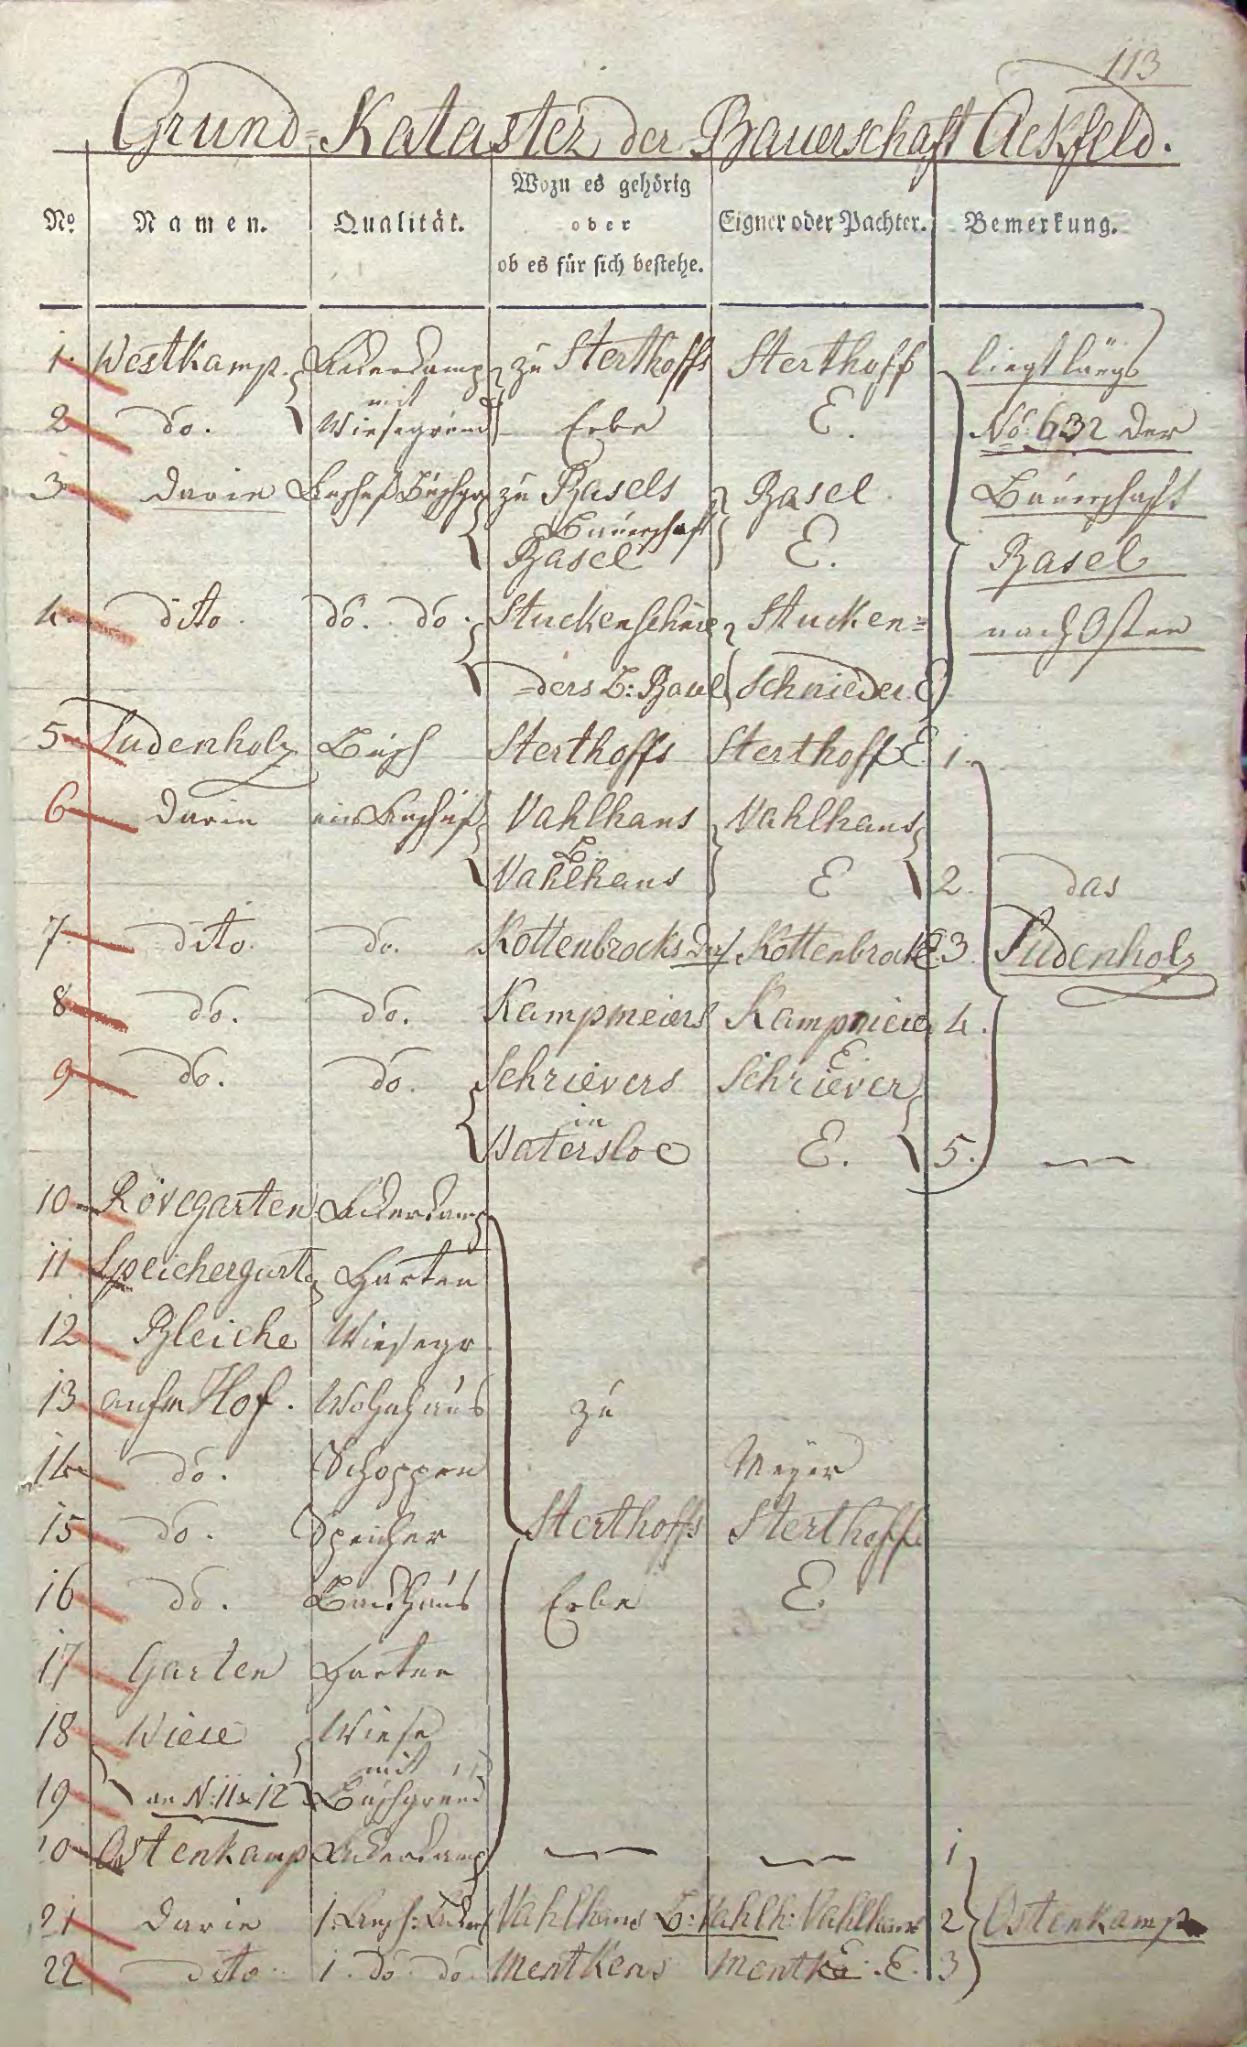 113
Grund-Kataster der Bauerschaft Ackfeld.
No. Namen. Qualität. Wozu es gehörig oder ob es für sich bestehe. Eigner oder Pachter. Bemerkung.
1. Westkamp. Ackerkamp zu Sterthoffs Sterthoff liegt längs
2 do. mit Wiesegrund Erbe E. No. 632 der
3 darin zu Basels Basel Bauerschaft
Bauerschaft Basel E. Basel
4. dito do. do. Stuckenschnie Stucken= nach Osten
=ders B: Basel Schnieder E
5 Sudenholz Busch Sterthoffs Sterthoff E. 1.
6 darin ein Vahlhaus Vahlhaus
B. Vahlhaus E 2. das
7. dito. do. Kottenbrocks Kottenbrock E. 3. Sudenholz
8 do. do. Kampmeiers Kampmeier 4.
E.
9 do. do. Schrievers Schriever
in Vatersloe E. 5.
10 Rövegarten Ackerkamp
11 Speichergart Garten
12 Bleiche Wiesegr
13 aufm Hof. Wohnhaus zu
14 do. Schoppen Meyer
15 do. Speicher Sterthoffs Sterthoff
16 do. Backhaus Erbe E.
17 Garten Garten
18 Wiese Wiese
mit
19 an N: 11 & 12 Buschgrund
20 Ostenkamp Ackerkamp 1
21 darin 1. Vahlhaus B: Vahlh: Vahlhaus 2 Ostenkamp
22 dito. 1. do. do. Mentkens Mentke. E. 3